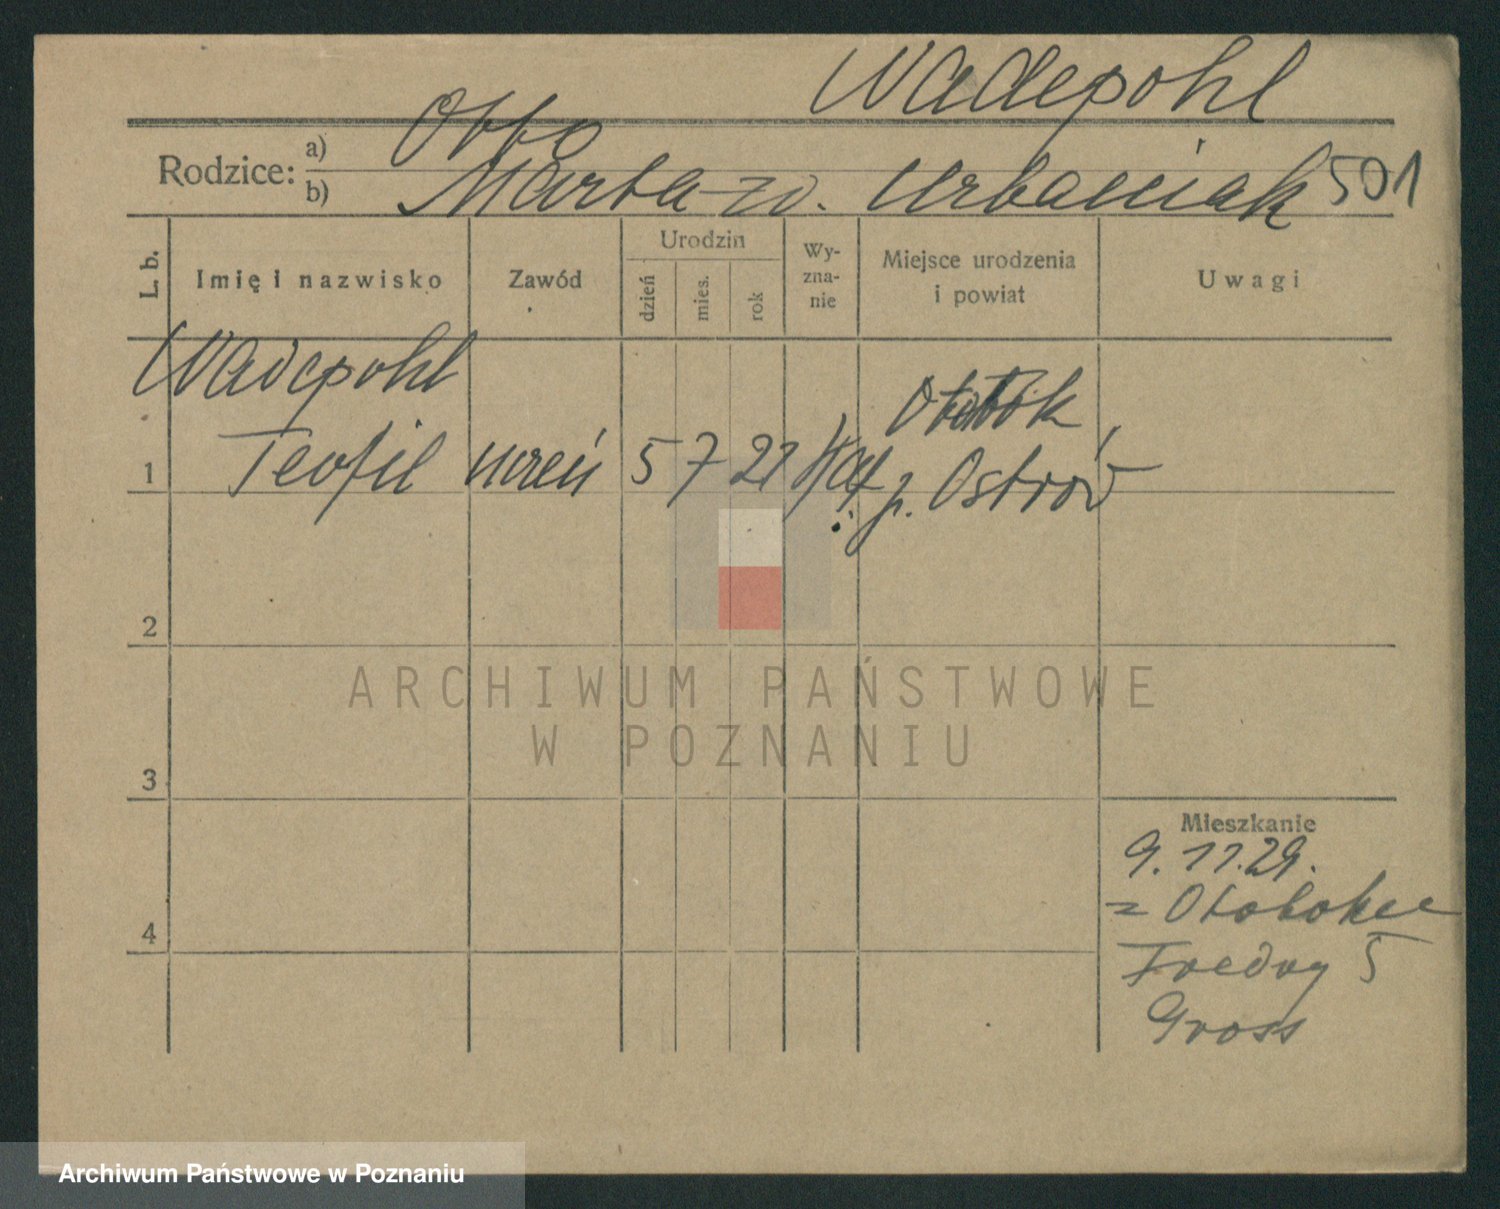 Wadepohl
Rodzice: a) Otto
b) Marta z d. Urbaniak 501
L. b. Imię i nazwisko Zawód Urodzin dzień mies. rok Wy-zna-nie Miejsce urodzenia i powiat Uwagi
Wadepohl
Otobok
1 Teofil uczeń 5 7 22 kat p. Ostrów
2
ARCHIWUM PAŃSTWOWE
W POZNANIU
3
Mieszkanie
9. 11. 29.
z Otoboku
4
Fredry 5
Gross
Archiwum Państwowe w Poznaniu